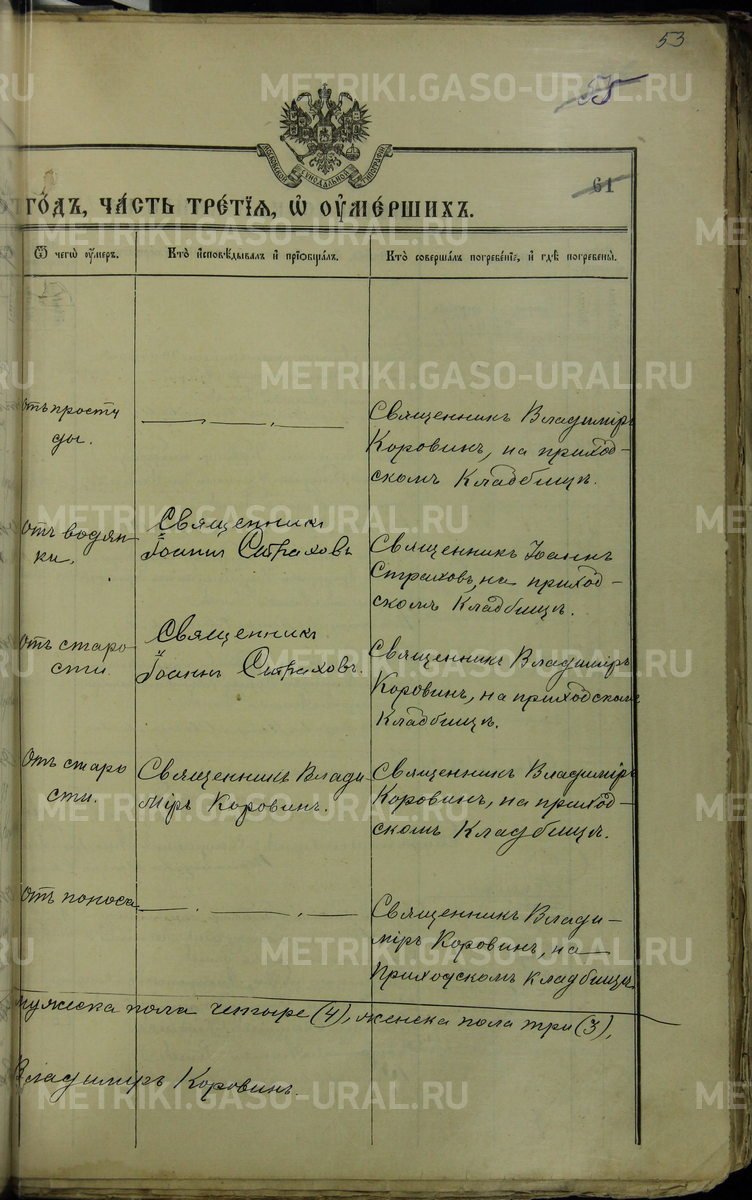 53
55
МОСКОВСКОЙ СѴНОДАЛЬНОЙ ТИПОГРАФІИ
61
ГО́ДЪ, ЧА́СТЬ ТРЕ́ТІѦ, Ѡ҆ ОУ҆МЕ́РШИХЪ.
Ѿ чегѡ̀ оу҆́меръ.
Кто̀ и҆сповѣ́дывалъ и҆ прїѡбща́лъ.
Кто̀ соверша́лъ погребе́нїе, и҆ гдѣ̀ погребены̀.
отъ просту
ды.
Священникъ Владиміръ
Коровинъ, на приход-
скомъ Кладбищѣ.
отъ водян
ки.
Священникъ
Іоаннъ Страховъ
Священникъ Іоаннъ
Страховъ, на приход-
скомъ Кладбищѣ.
отъ старо
сти
Священникъ
Іоаннъ Страховъ.
Священникъ Владиміръ
Коровинъ, на приходскомъ
Кладбищѣ.
отъ старо
сти.
Священникъ Влади
міръ Коровинъ.
Священникъ Владиміръ
Коровинъ, на приход-
скомъ Кладбищѣ.
отъ поноса
Священникъ Влади-
міръ Коровинъ, на
Приходскомъ кладбищѣ
мужеска пола четыре (4), женска пола три (3),
Владиміръ Коровинъ.
METRIKI.GASO-URAL.RU